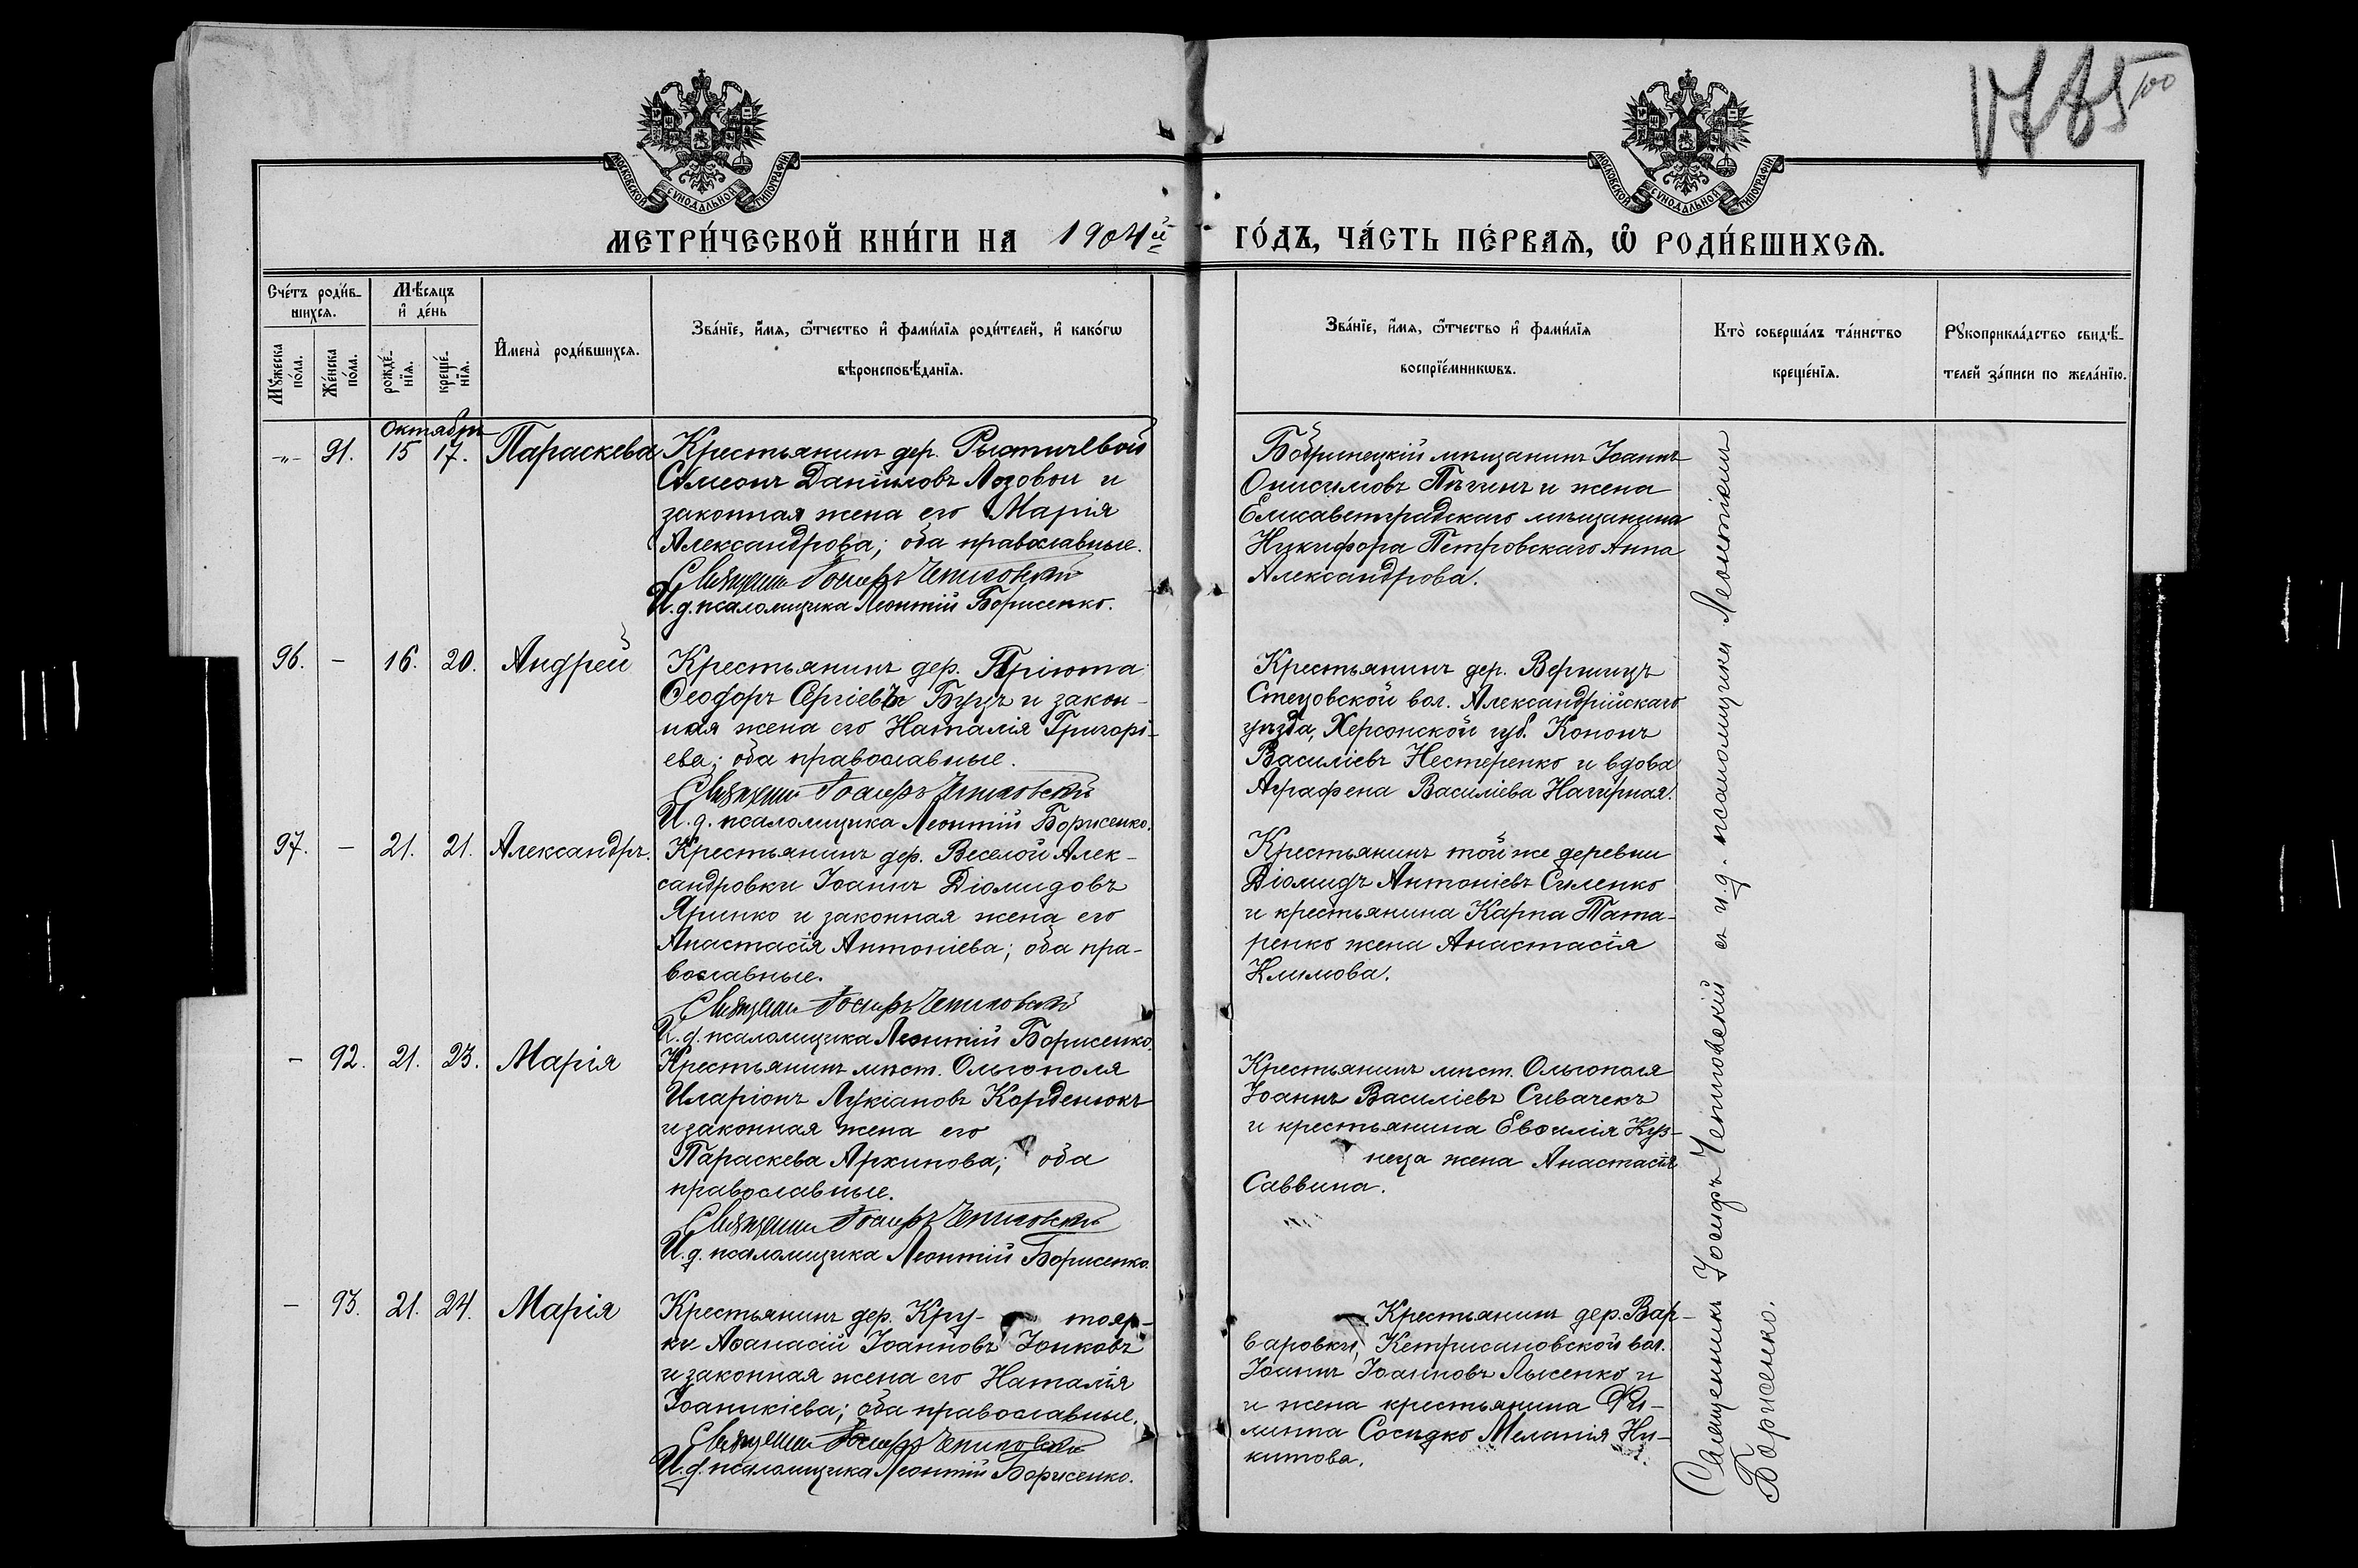 1785
100
МОСКОВСКОЙ СѴНОДАЛЬНОЙ ТИПОГРАФІИ
МОСКОВСКОЙ СѴНОДАЛЬНОЙ ТИПОГРАФІИ
МЕТРИ́ЧЕСКОЙ КНИ́ГИ НА 1904й ГО́ДЪ, ЧА́СТЬ ПЕ́РВАѦ, Ѽ РОДИ́ВШИХСѦ.
Сче́тъ роди́в-
шихсѧ.
Мѣ́сѧцъ
и҆ де́нь
Мꙋ́жеска
по́ла.
Же́нска
по́ла.
рожде́-
нїѧ.
креще́-
нїѧ.
И҆мена̀ роди́вшихсѧ.
Зва́нїе, и҆́мѧ, ѻ҆́тчество и҆ фами́лїѧ роди́телей, и҆ како́гѡ
вѣроисповѣ́данїѧ.
Зва́нїе, и҆́мѧ, ѻ҆́тчество и҆ фами́лїѧ
воспрїе́мникѡвъ.
Кто̀ соверша́лъ та́инство
креще́нїѧ.
Рꙋкоприкла́дство свидѣ́-
телей за́писи по жела́нїю.
Октябрь
-„- 91. 15 17. Параскева
Крестьянинъ дер. Рыстичевой
Симеонъ Даніиловъ Лозовой и
законная жена его Марія
Александрова; оба православные.
Священн Іосифъ Чепиговскій
И. д. псаломщика Леонтій Борисенко.
Бобринецкій мѣщанинъ Іоаннъ
Онисимовъ Пѣгинъ и жена
Елисаветградскаго мѣщанина
Никифора Петровскаго Анна
Александрова.
96. - 16. 20. Андрей
Крестьянинъ дер. Пріюта
Ѳеодоръ Сергіевъ Буцъ и закон-
ная жена его Наталія Григорі-
ева; оба православные.
Священн Іосифъ Чепиговскій
И. д. псаломщика Леонтій Борисенко.
Крестьянинъ дер. Вершицъ
Стецовской вол. Александрійскаго
уѣзда, Херсонской губ. Кононъ
Василіевъ Нестеренко и вдова
Аграфена Василіева Нагирная.
97. - 21. 21. Александръ.
Крестьянинъ дер. Веселой Алек-
сандровки Іоаннъ Діомидовъ
Яринко и законная жена его
Анастасія Антоніева; оба пра-
вославные.
Священн Іосифъ Чепиговскій
И. д. псаломщика Леонтій Борисенко.
Крестьянинъ той же деревни
Діомидъ Антоніевъ Силенко
и крестьянина Карпа Тата-
ренко жена Анастасія
Климова.
- 92. 21. 23. Марія
Крестьянинъ мѣст. Ольгополя
Иларіонъ Лукіановъ Корденюкъ
и законная жена его
Параскева Архипова; оба
православные.
Священн Іосифъ Чепиговскій
И. д. псаломщика Леонтій Борисенко.
Крестьянинъ мѣст. Ольгополя
Іоаннъ Василіевъ Сивачекъ
и крестьянина Евѳимія Куз-
неца жена Анастасія
Саввина.
- 93. 21. 24. Марія
Крестьянинъ дер. Кру- тояр-
ки Аѳанасій Іоанновъ Іонковъ
и законная жена его Наталія
Іоаникіева; оба православные.
Священн Іосифъ Чепиговскій
И. д. псаломщика Леонтій Борисенко.
Крестьянинъ дер. Вар-
варовки, Кетрисановской вол.
Іоаннъ Іоанновъ Лысенко и
и жена крестьянина Фи-
липпа Сосидко Меланія Ни-
китова.
Священникъ Іосифъ Чепиговскій съ и. д. псаломщика Леонтіемъ
Борисенко.